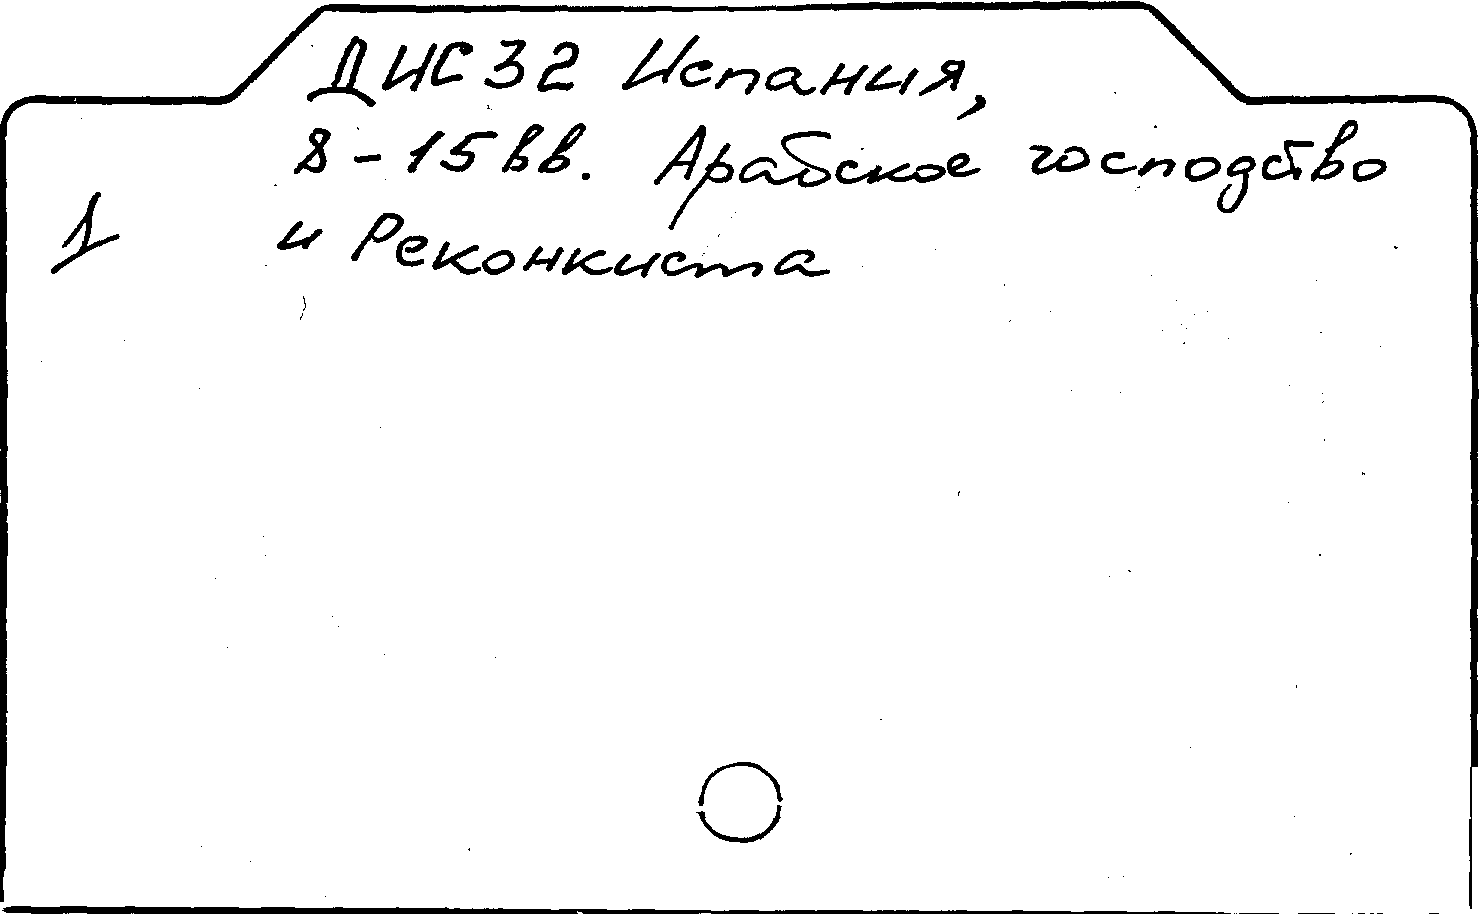 ДИС 32 Испания,
8-15 вв. Арабское господство
1 и Реконкиста